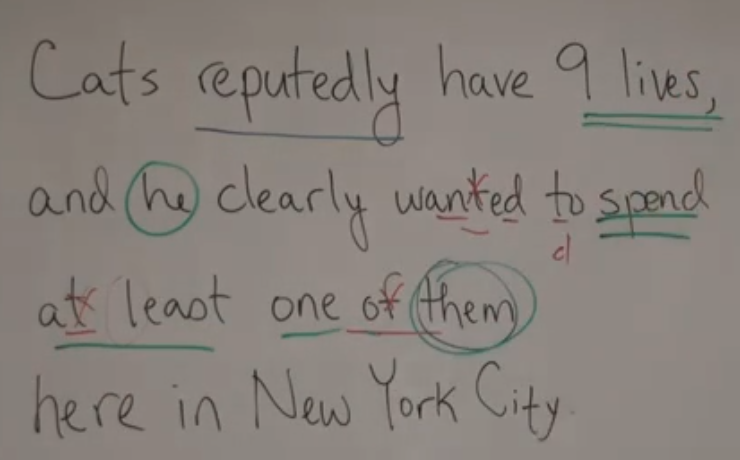 Cats reputedly have 9 lives,
and he clearly wanted to spend
d
at least one of them
here in New York City.